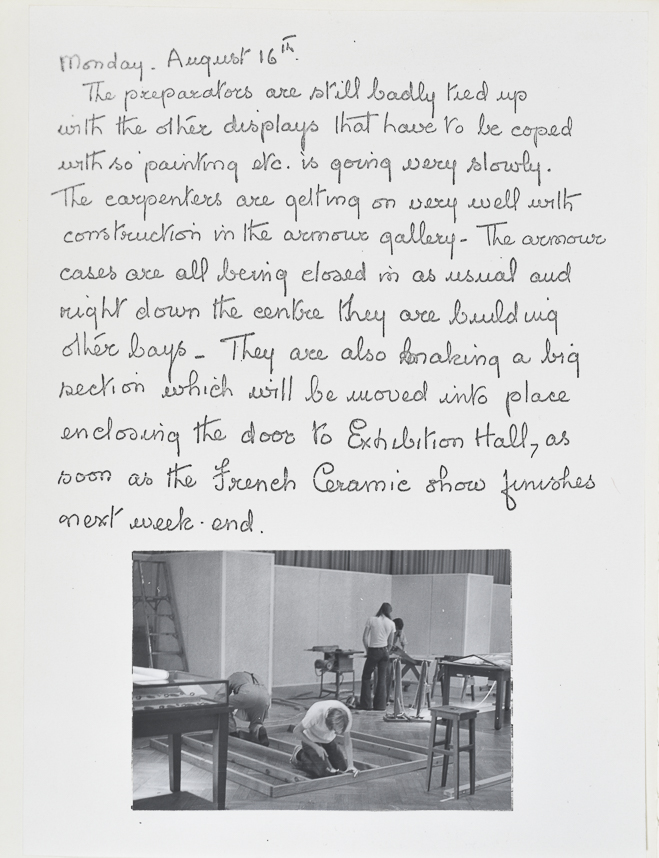 Monday. August 16th.
The preparators are still badly tied up
with the other displays that have to be coped
with so painting etc. is going very slowly.
The carpenters are getting on very well with
construction in the armour gallery - The armour
cases are all being closed in as usual and
right down the centre they are building
other bays - They are also making a big
section which will be moved into place
enclosing the door to Exhibition Hall, as
soon as the French Ceramic show finishes
next week-end.